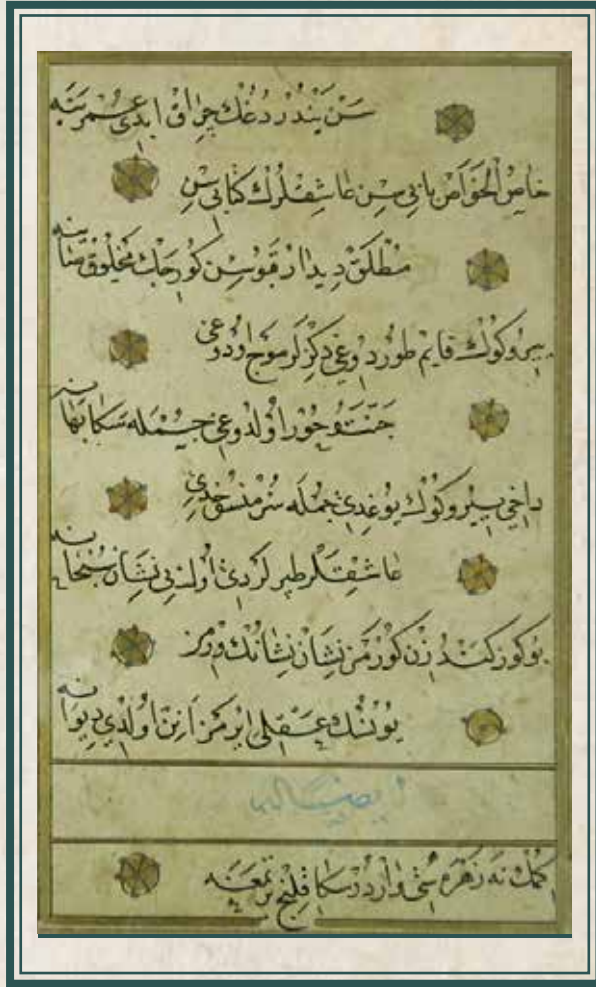 سَنْ یَنْدُرْدُغُكْ چِراقْ ابدی عُمْر یَنَه
خاصُ الْخَوَاصْ بابی سِن عاشِقْلَرُكْ كتابی سِنْ
مُطْلَقْ دیدارْ قَپوسِن كورجك مَخْلُوقْ
ییروكوكْ قایم طوردوغی دكزلَر موج اوردوغی
جَنَّتو حُور اولدوغی جمله سَكا بَهانه
داخی ییروكوك یوغدی جُمله
عاشِقْلَر اولدی نِشانْ سُبْحانه
بوكوز كَنْدُزِن كورْمَز نِشانْ نِشانُكْ ویرمز
یُونُسُكْ عَقْلی ایرمَز اَنِنْ اولدی دیوانه
ایضا له
كِمُكْ نَه زَهْرَه سی واردُرْ سَكا قِلِنج